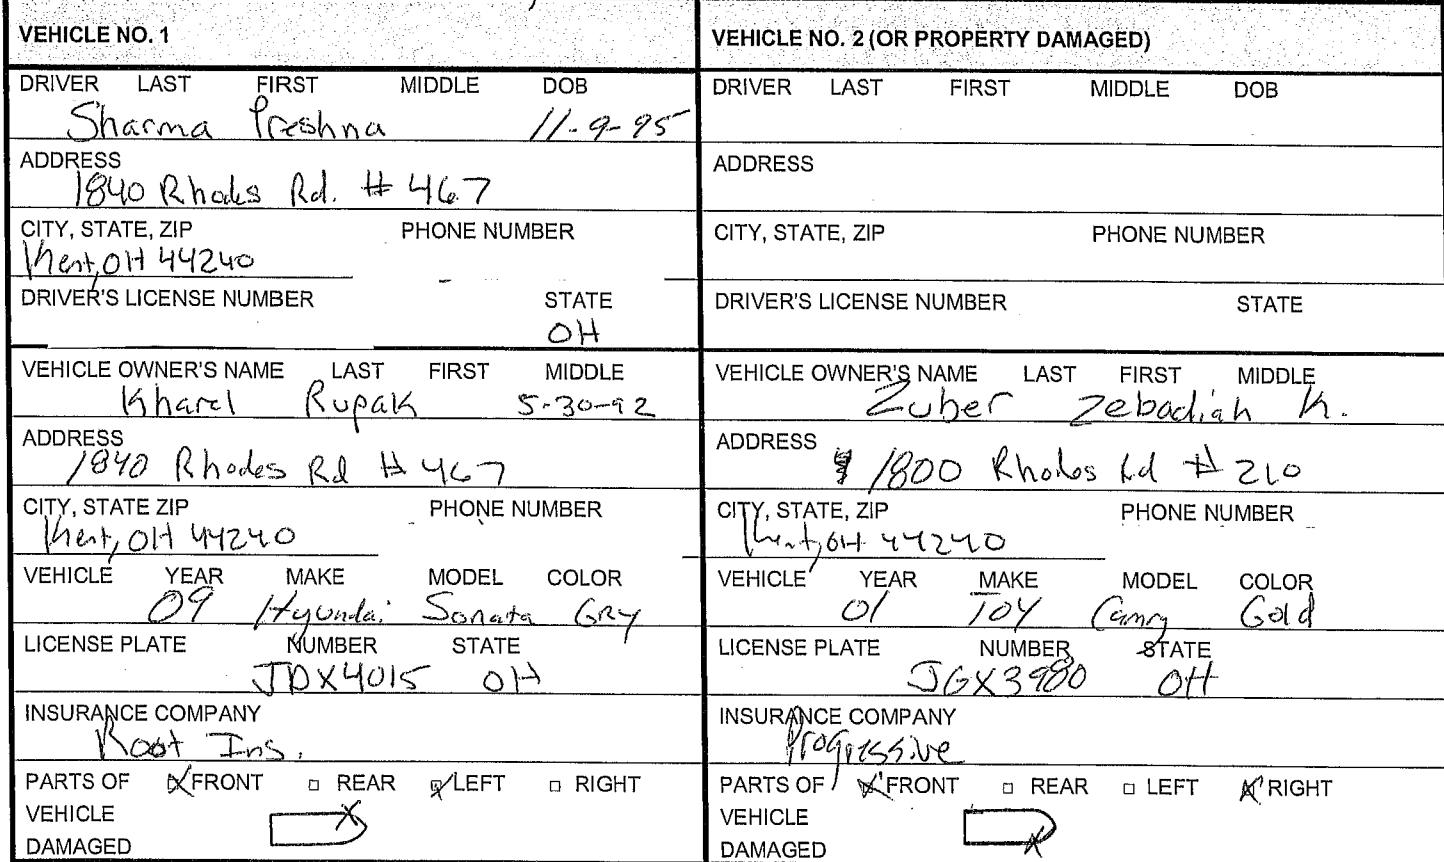 VEHICLE NO. 1
DRIVER LAST FIRST MIDDLE DOB
Sharma Preshna 11-9-95
ADDRESS
1840 Rhodes Rd. # 467
CITY, STATE, ZIP PHONE NUMBER
Kent, OH 44240
DRIVER'S LICENSE NUMBER STATE
OH
VEHICLE OWNER'S NAME LAST FIRST MIDDLE
Kharel Rupak 5-30-92
ADDRESS
1840 Rhodes Rd # 467
CITY, STATE ZIP PHONE NUMBER
Kent, OH 44240
VEHICLE YEAR MAKE MODEL COLOR
09 Hyundai Sonata GRY
LICENSE PLATE NUMBER STATE
JDX4015 OH
INSURANCE COMPANY
Root Ins.
PARTS OF FRONT REAR LEFT RIGHT
VEHICLE
DAMAGED
VEHICLE NO. 2 (OR PROPERTY DAMAGED)
DRIVER LAST FIRST MIDDLE DOB
ADDRESS
CITY, STATE, ZIP PHONE NUMBER
DRIVER'S LICENSE NUMBER STATE
VEHICLE OWNER'S NAME LAST FIRST MIDDLE
Zuber Zebadiah K.
ADDRESS
1800 Rhodes Rd # 210
CITY, STATE, ZIP PHONE NUMBER
Kent, OH 44240
VEHICLE YEAR MAKE MODEL COLOR
01 TOY Camry Gold
LICENSE PLATE NUMBER STATE
JGX3980 OH
INSURANCE COMPANY
Progressive
PARTS OF FRONT REAR LEFT RIGHT
VEHICLE
DAMAGED